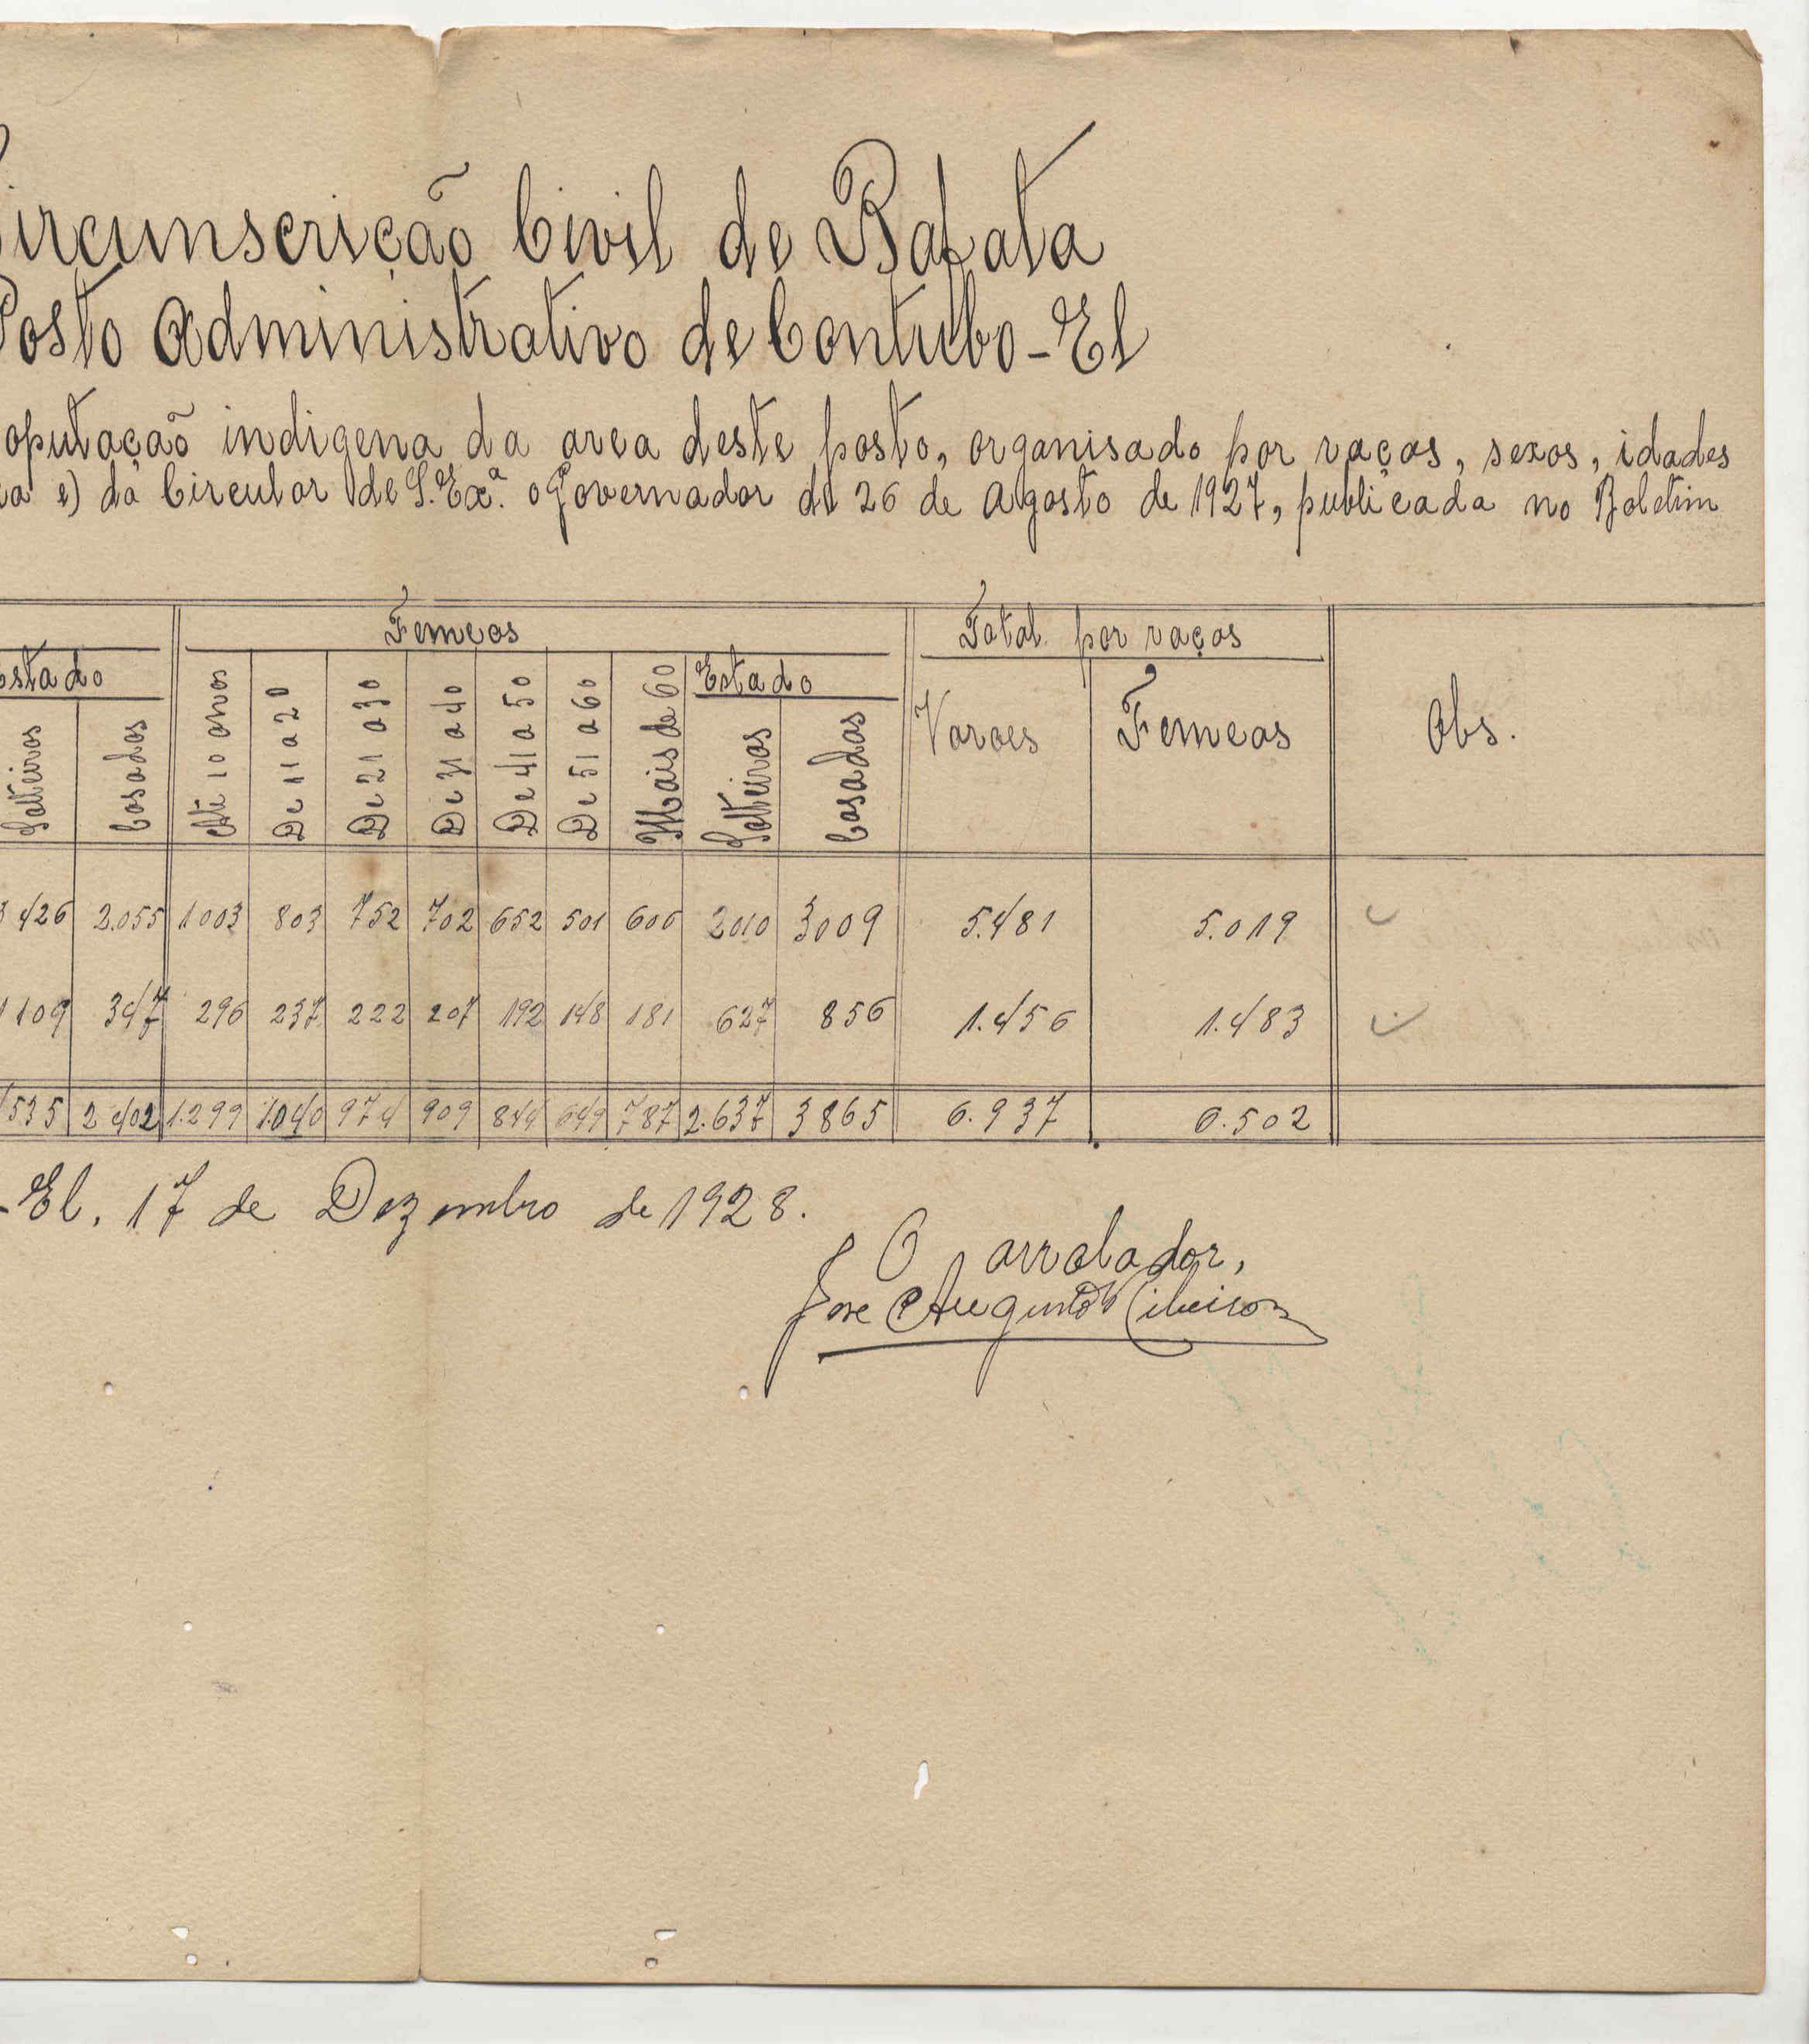 Circunscrição Civil de Bafata
Posto Administrativo de Contubo-El
opulação indigena da area deste posto, organisado por raças, sexos, idades
e) da Circular de S. Exª. o Governador de 26 de Agosto de 1927, publicada no Boletim
Femeas Total por raças
Estado Até 10 anos De 11 a 20 De 21 a 30 De 31 a 40 De 41 a 50 De 51 a 60 Mais de 60 Estado Varoes Femeas Obs.
Solteiros Casados Solteiras Casadas
3426 2.055 1003 803 752 702 652 501 606 2010 3009 5.481 5.019
1109 347 296 237 222 207 192 148 181 627 856 1.456 1.483
4535 2402 1.299 1.040 974 909 844 649 787 2.637 3865 6.937 6.502
-El, 17 de Dezembro de 1928.
O arrolador,
Jose Augusto Ribeiro